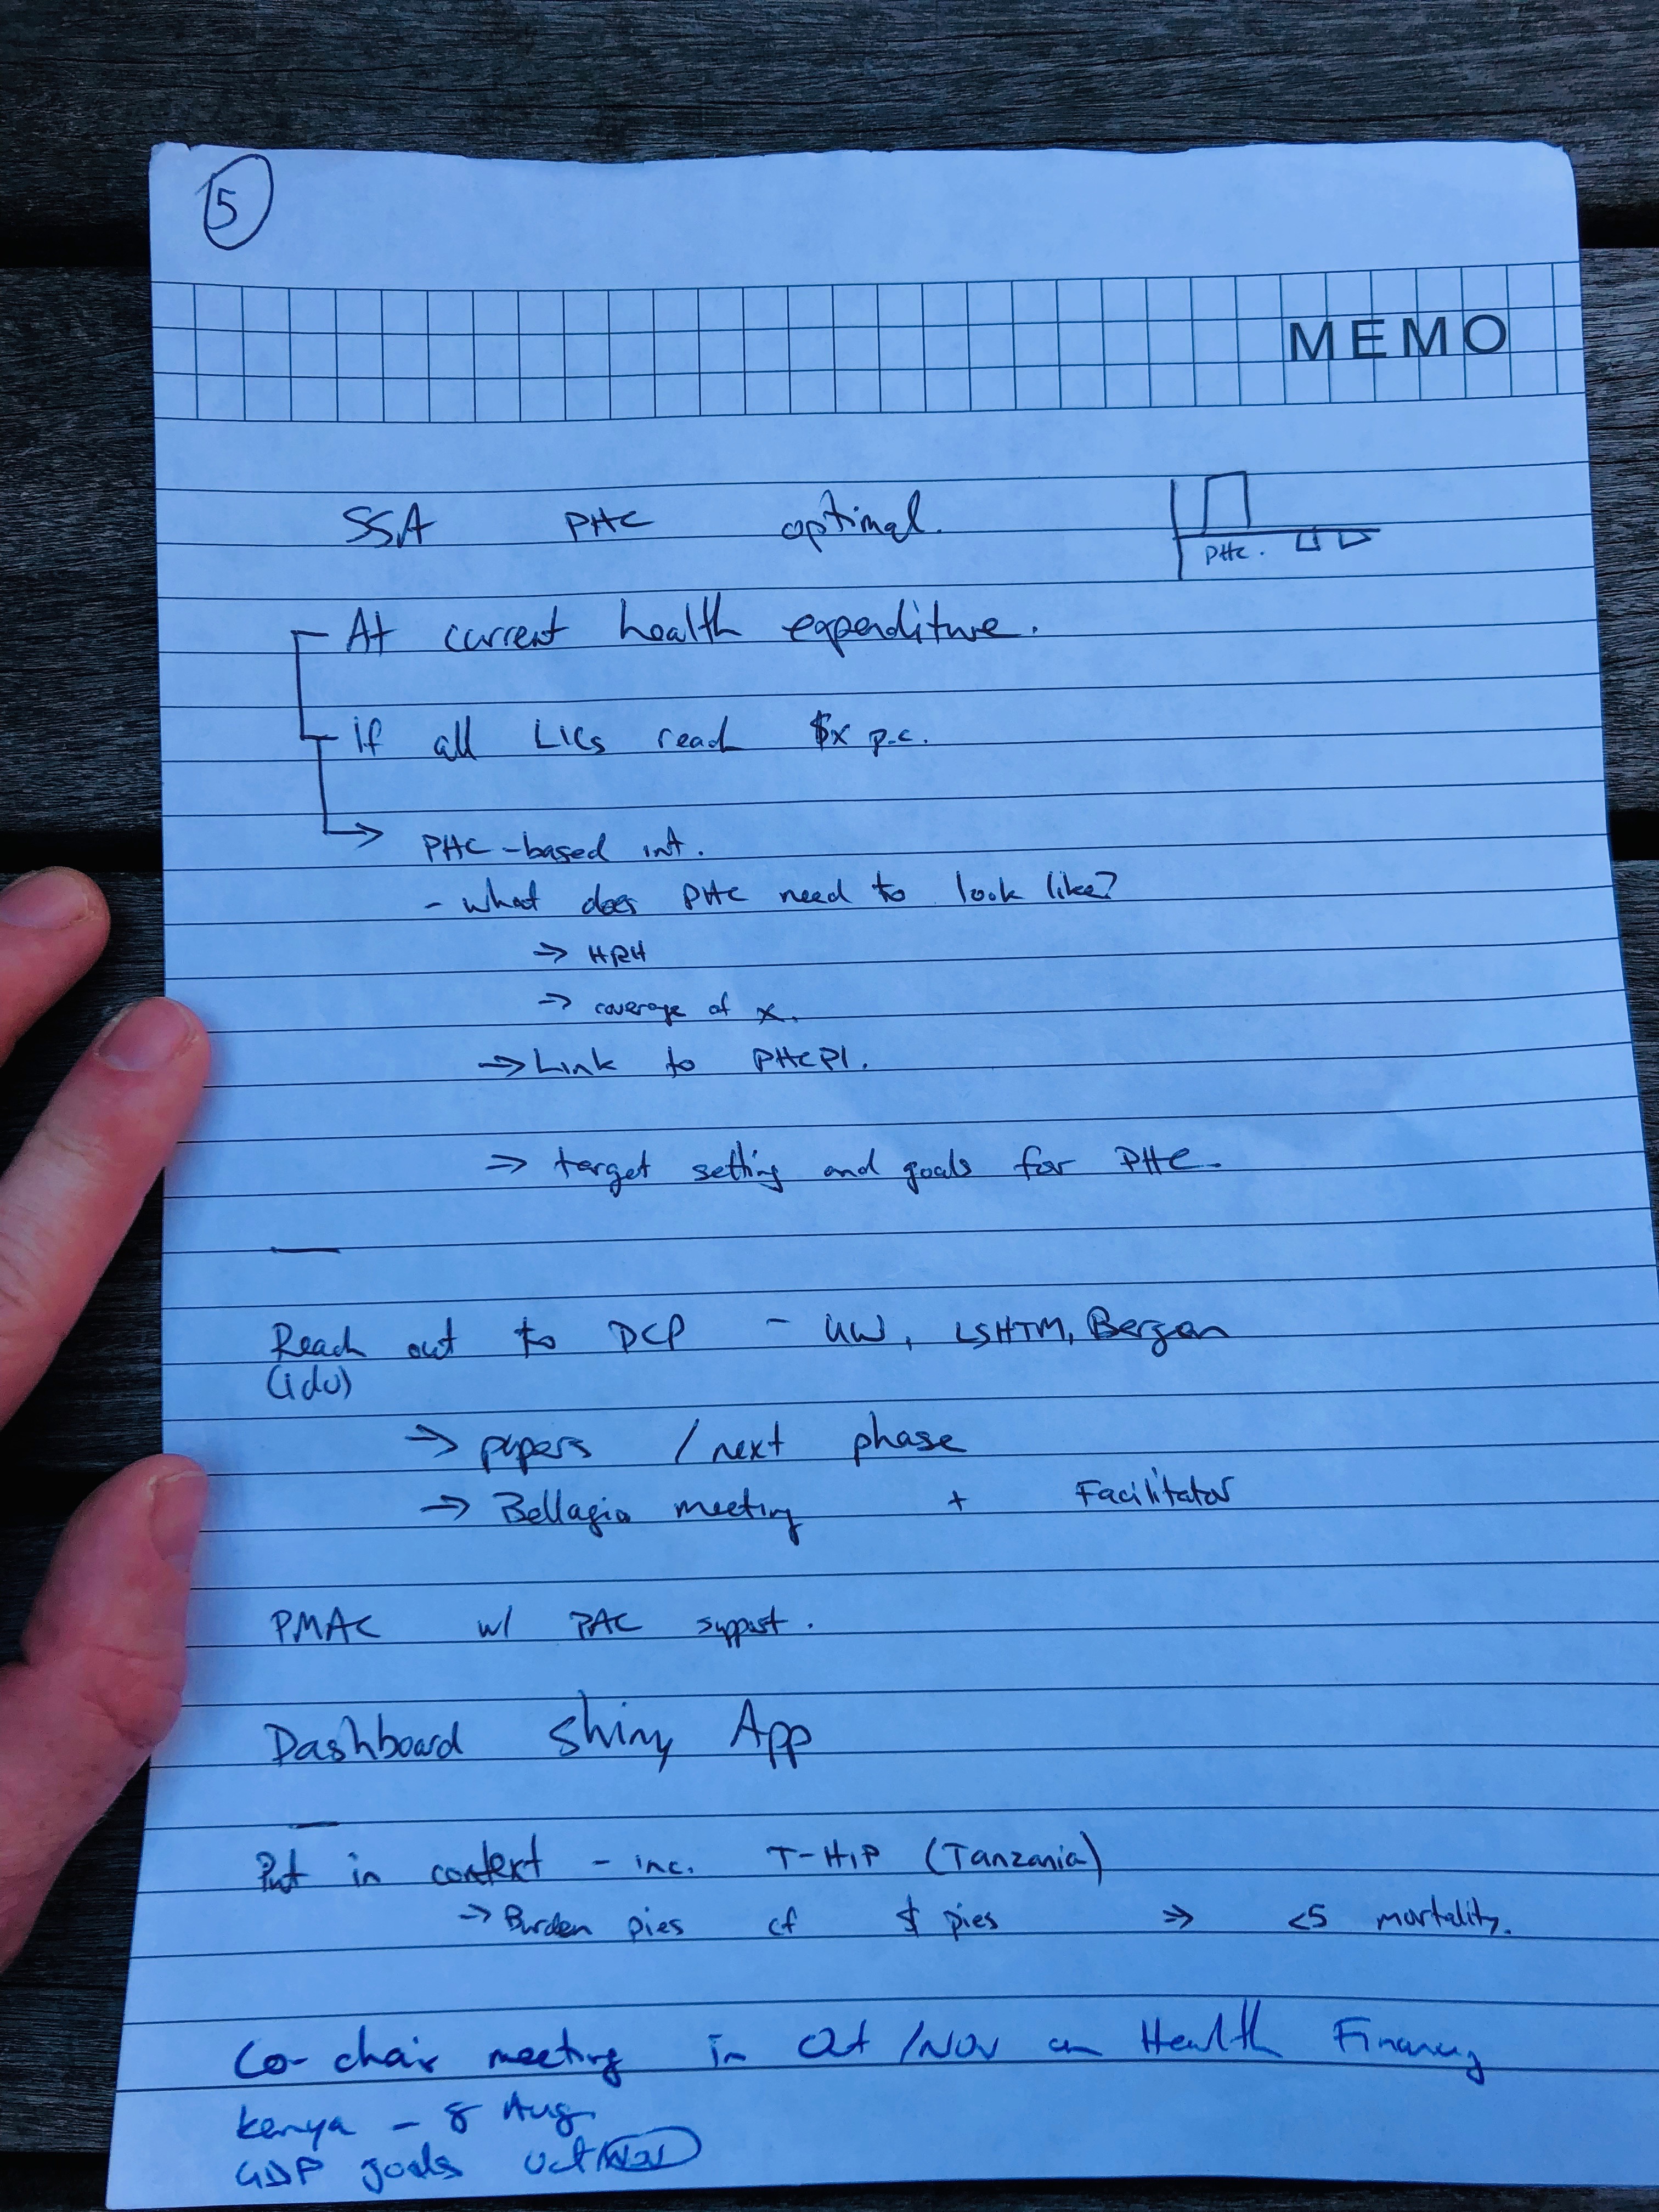 5
MEMO
SSA PHC optimal.
PHC.
- At current health expenditure.
- if all LICs reach $x p.c.
→ PHC-based int.
- what does PHC need to look like?
⇒ HRH
⇒ coverage of x.
→ Link to PHCPI.
⇒ target setting and goals for PHC.
Reach out to DCP - UW, LSHTM, Bergen
→ papers / next phase
→ Bellagio meeting + Facilitator
PMAC w/ PAC support.
Dashboard Shiny App
Put in context - inc. T-HIP (Tanzania)
→ Burden pies cf $ pies ⇒ <5 mortality.
Co-chair meeting in Oct/Nov on Health Financing
Kenya - 8 Aug
goals Oct/Nov